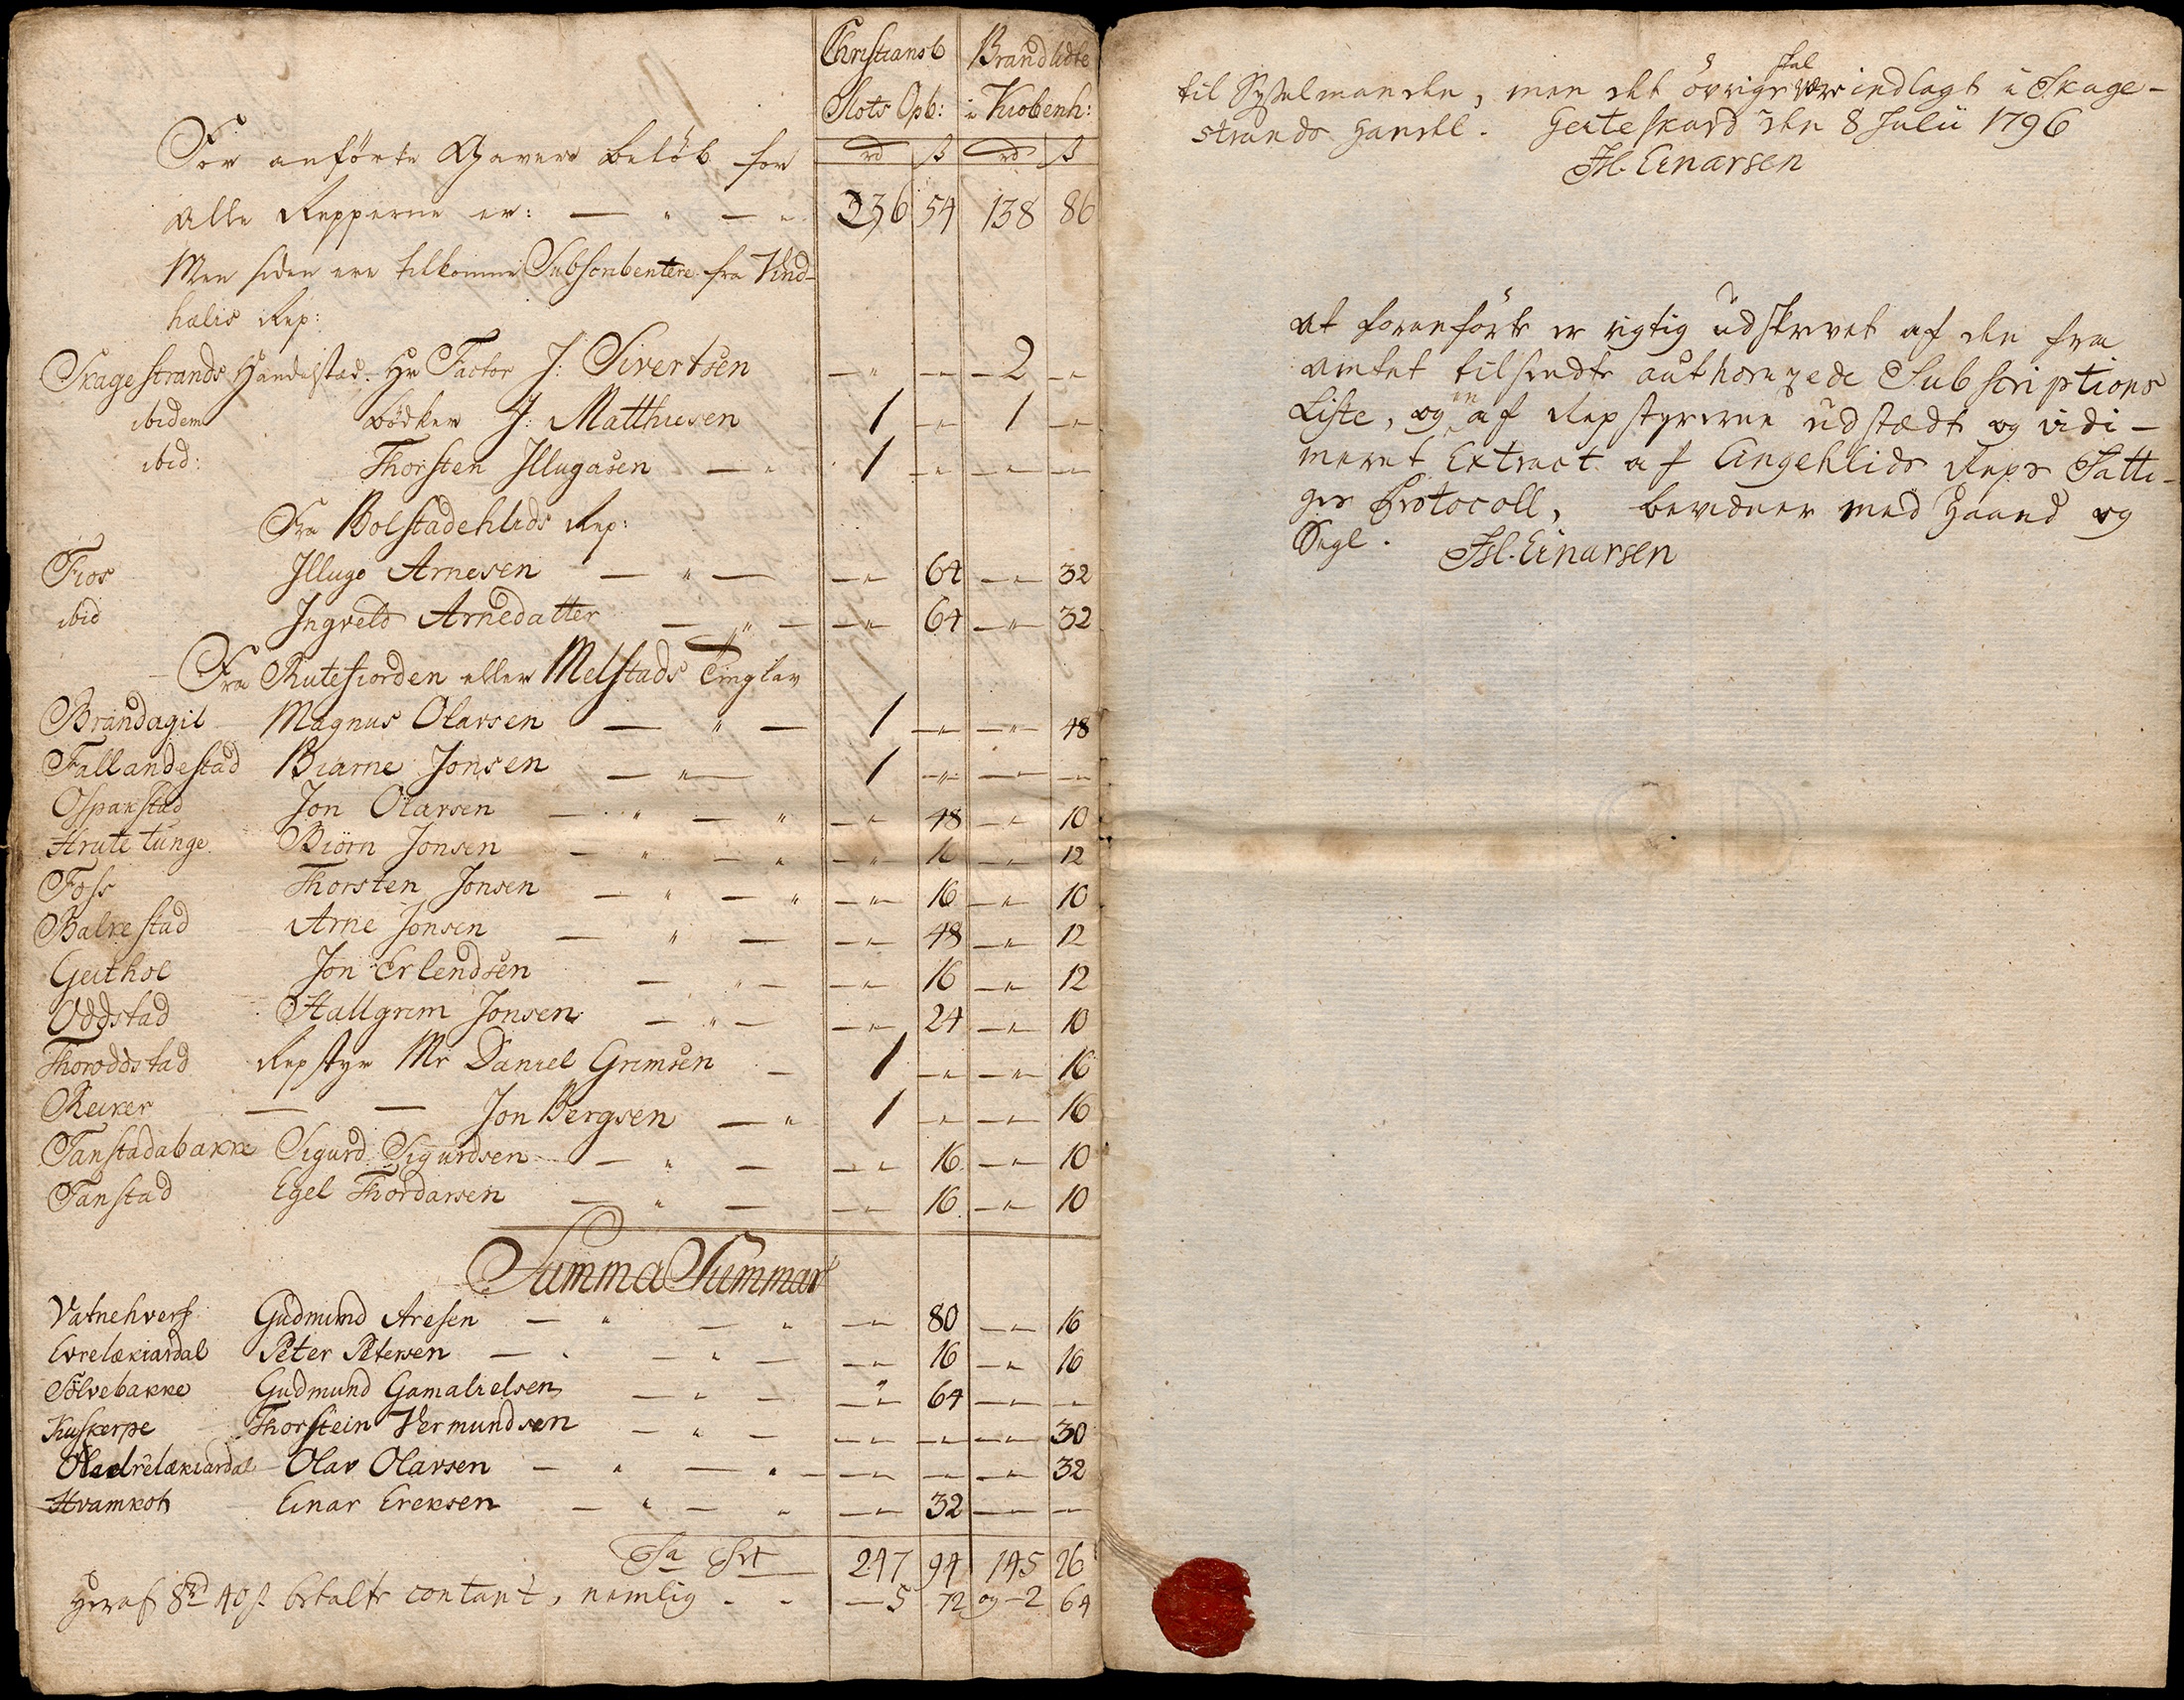 Christiansb Brandlidte
Slots Opb: i Kiobenh:
rd ß rd ß
For anförte Gavers beløb for
alle Repperne er: — " — " 236 54 138 86
Men siden ere tilkomne Subscribentere fra Vind-
hælis Rep:
Skagestrands Handelstad. Hr Factor J: Sivertsen — " — " — 2 — "
ibidem Bödker J: Matthiesen 1 — " 1 — "
ibid: Thorsten Illugasen — " 1 — " — " — "
Fra Bolstadehlids Rep:
Fios Illuge Arnesen — " — — " 64 — " 32
ibid Ingveld Arnedatter — " — — " 64 — " 32
Fra Rutefiorden eller Melstads Tinglav
Brandagil Magnus Olavsen — " — 1 — " — " 48
Fallandestad Biarne Jonsen — " — 1 — " — " — "
Ospakstad Jon Olavsen — " — " — " 48 — " 10
Hrutetunge Biörn Jonsen — " — " — " 16 — " 12
Foss Thorsten Jonsen — " — " — " 16 — " 10
Balkestad Arne Jonsen — " — — " 48 — " 12
Geithol Jon Erlendsen — " — — " 16 — " 12
Oddstad Hallgrim Jonsen — " — — " 24 — " 10
Thoroddstad Repstyr Mr Daniel Grimsen — 1 — " — " 16
Reiker — — Jon Bergsen — " 1 — " — " 16
Tanstadabakke Sigurd Sigurdsen — " — — " 16 — " 10
Tanstad Egel Thordarsen — " — — " 16 — " 10
Summa Summar
Vatnehverf Gudmund Aresen — " — " — " 80 — " 16
Evrelækiardal Peter Petersen — " — " — — " 16 — " 16
Sölvebakke Gudmund Gamalielsen — " — — " 64 — " — "
Kuskerpe Thorstein Vermundsen — " — — " — " — " 30
Olav Olavsen — " — " — — " — " — " 32
Hvamkot Einar Ereksen — " — " — " 32 — " — "
Sa Srt 247 94 145 26
Heraf 8rd 40ß betalte contant, nemlig - - — 5 72 og — 2 64
til Sysselmanden, men det övrige skal være indlagt i Skage-
strands Handel. Geiteskard den 8 Julii 1796
Isl. Einarsen
At foranförte er rigtig udskrevet af den fra
Amtet tilsendte authorizede Subscriptions
Liste, og en af Repstyrerne udstædt og vidi-
meret Extract af Engehlids Reps Fatti-
ges Protocoll, bevidner med Haand og
Segl. Isl. Einarsen